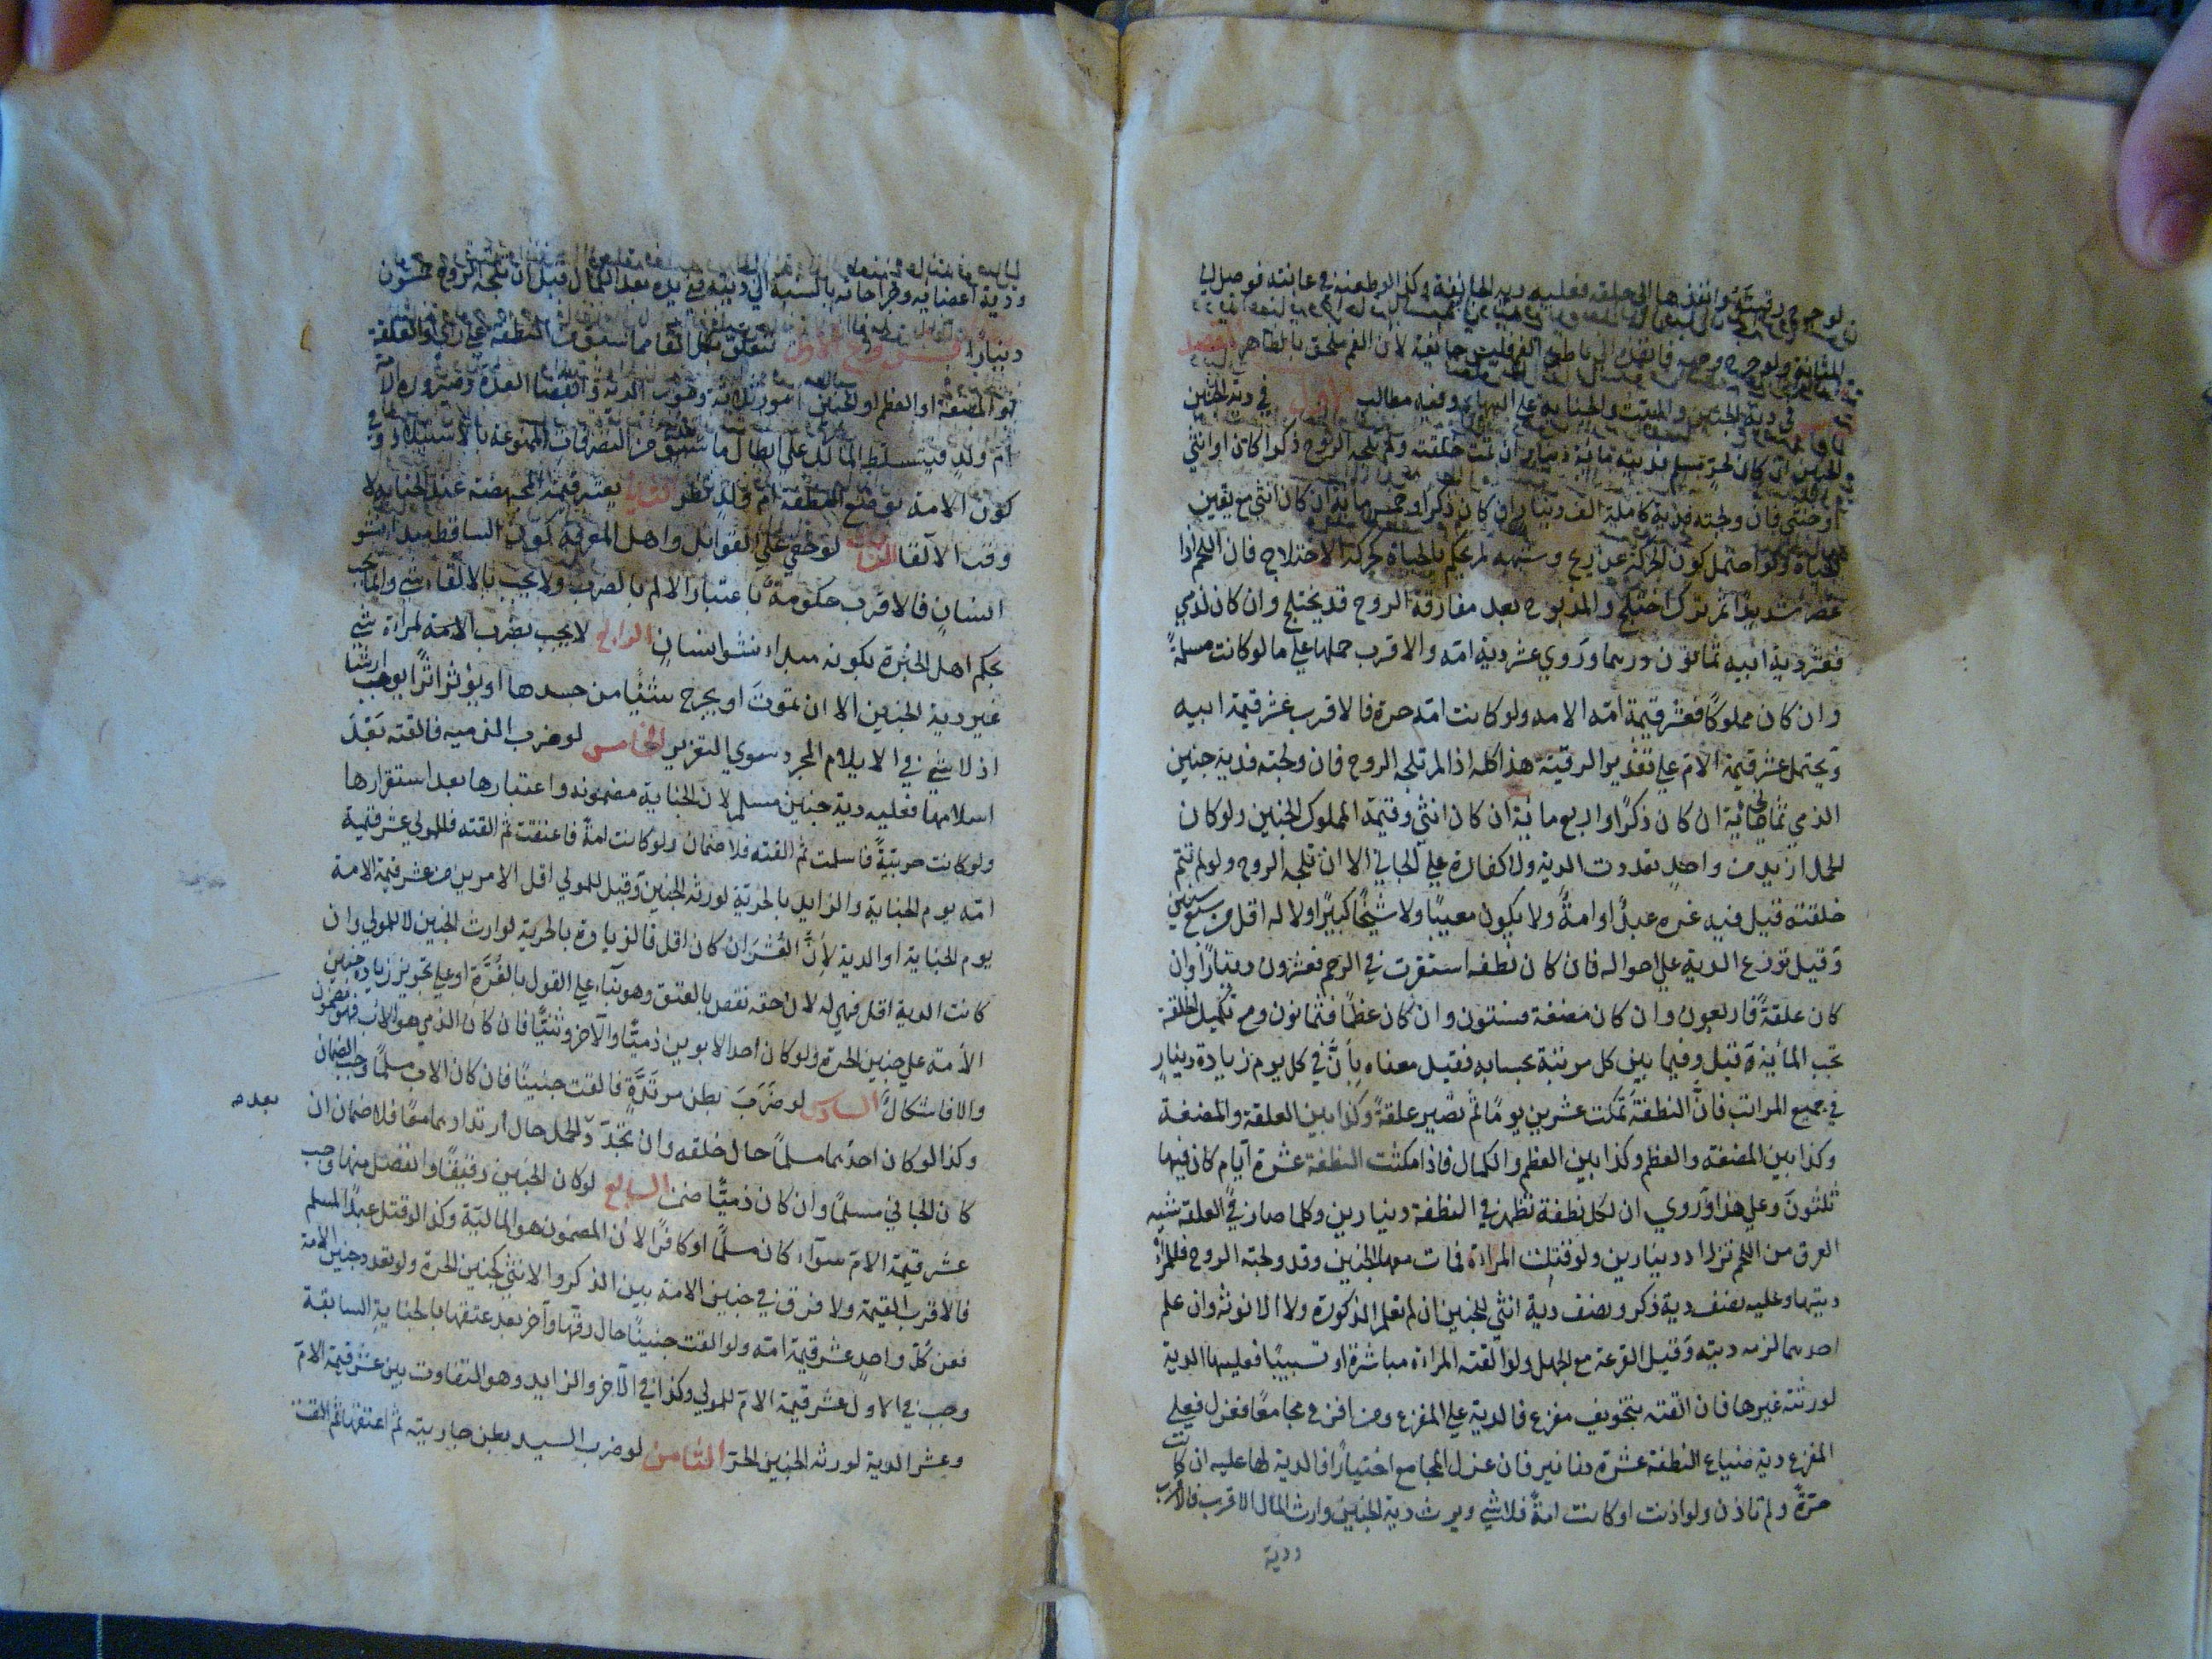 لو جرح رقبته وانفذها الى حلقه فعليه دية الجايفة وكذا لو طعنه في عانته فوصل الى
المثانة ولو جرح وجهه فانفذه الى باطن الفم فليست جايفة لان الفم ملحق بالظاهر المقصد
في دية الجنين والميت والجناية على البهايم وفيه مطالب الاول في دية الجنين
الجنين ان كان لحر مسلم فديته مائة دينار ان تمت خلقته ولم تلجه الروح ذكرا كان او انثى
او خنثى فان ولجته فدية كاملة الف دينار ان كان ذكرا وخمس مائة ان كان انثى مع يقين
الحياة ولو احتمل كون الحركة عن ريح وشبهه لم يحكم بالحياة كحركة الاختلاج فان اللحم اذا
عصر شديدا ثم ترك اختلج والمذبوح بعد مفارقة الروح قد يختلج وان كان لذمي
فعشر دية ابيه ثمانون درهما وروي عشر دية امه والاقرب حملها على ما لو كانت مسلمة
وان كان مملوكا فعشر قيمة امه الامة ولو كانت امه حرة فالاقرب عشر قيمة ابيه
ويحتمل عشر قيمة الام على تقدير الرقية هذا كله اذا لم تلجه الروح فان ولجته فدية جنين
الذمي ثمانمائة ان كان ذكرا واربع مائة ان كان انثى وقيمة المملوك الجنين ولو كان
الحمل ازيد من واحد تعددت الدية ولا كفارة على الجاني الا ان تلجه الروح ولو لم تتم
خلقته قيل فيه غرة عبدا او امة ولا يكون معيبا ولا شيخا كبيرا ولا له اقل من سبع سنين
وقيل توزع الدية على احواله فان كان نطفة استقرت في الرحم فعشرون دينارا وان
كان علقة فاربعون وان كان مضغة فستون وان كان عظما فثمانون ومع تكميل الخلقة
تجب المائة قيل وفيما بين كل مرتبة بحسابه فقيل معناه بان في كل يوم زيادة دينار
في جميع المراتب فان النطفة تمكث عشرين يوما ثم تصير علقة وكذا بين العلقة والمضغة
وكذا بين المضغة والعظم وكذا بين العظم والكمال فاذا مكثت النطفة عشرة ايام كان فيها
ثلثون وعلى هذا وروي ان لكل نطفة تظهر في النطفة دينارين وكلما صار في العلقة شبه
العرق من اللحم تزداد دينارين ولو قتلت المراة فمات معها الجنين وقد ولجته الروح فللمراة
ديتها وعليه نصف دية ذكر ونصف دية انثى للجنين ان لم تعلم الذكورة ولا الانوثة وان علم
احدهما لزمه ديته وقيل القرعة مع الجهل ولو القته المراة مباشرة او تسبيبا فعليها الدية
لورثته غيرها فان القته بتخويف مفزع فالدية على المفزع ومن افزع مجامعا فعزل فعلى
المفزع دية ضياع النطفة عشرة دنانير فان عزل المجامع اختيارا فالدية لها عليه ان كانت
حرة ولم تاذن ولو اذنت او كانت امة فلا شي ويرث دية الجنين وارث المال الاقرب فالاقرب
ودية
ودية اعضائه وجراحاته بالنسبة الى ديته ففي يده بعد الكمال قبل ان تلجه الروح خمسون
دينارا فروع الاول تتعلق بكل القا مما سبق من النطفة على راي والعلقة
او المضغة او العظم او الجنين امور ثلاثة وجوب الدية وانقضا العدة وصيرورة الامة
ام ولد فيتسلط المالك على ابطال ما سبق من التصرفات الممنوعة بالاستيلاد وفي
كون الامة بوضع النطفة ام ولد نظر الثاني يعتبر قيمة المجهضة عند الجناية لا
وقت الالقا الثالث لو خفي على القوابل واهل المعرفة كون الساقط مبدا نشو
انسان فالاقرب حكومة باعتبار الالم بالضرب ولا يجب بالالقاء شي وانما يجب
بحكم اهل الخبرة بكونه مبدا نشو انسان الرابع لا يجب بضرب الامة لمراة شي
غير دية الجنين الا ان تموت او يجرح شيئا من جسدها او يؤثر اثرا يوجب ارشا
اذ لا شي في الايلام المجرد سوى التعزير الخامس لو ضرب الذمية فالقته بعد
اسلامها فعليه دية جنين مسلم لان الجناية مضمونة واعتبارها بعد استقرارها
ولو كانت حربية فاسلمت ثم القته فلا ضمان ولو كانت امة فاعتقت ثم القته فللمولى عشر قيمة
امه يوم الجناية والزايد بالحرية لورثة الجنين وقيل للمولى اقل الامرين من عشر قيمة الامة
يوم الجناية او الدية لان العشر ان كان اقل فالزيادة بالحرية لوارث الجنين لا للمولى وان
كانت الدية اقل فهي له لان حقه نقص بالعتق وهو بناء على القول بالغرة او على تجويز زيادة جنين
الامة على جنين الحرة ولو كان احد الابوين ذميا والاخر وثنيا فان كان الذمي هو الاب فهو مضمون
والا فاشكال السادس لو ضرب بطن مرتدة فالقت جنينا فان كان الاب مسلما وجب الضمان
وكذا لو كان احدهما مسلما حال خلقه وان تجدد الحمل حال ارتدادهما معا فلا ضمان ان
بعده
كان الجاني مسلما وان كان ذميا ضمن السابع لو كان الجنين رقيقا وانفصل ميتا وجب
عشر قيمة الام سواء كان مسلما او كافرا لان المضمون هو المالية وكذا لو قتل عبدا لمسلم
فالاقرب القيمة ولا فرق في جنين الامة بين الذكر والانثى كجنين الحرة ولو تعدد جنين الامة
فعن كل واحد عشر قيمة امه ولو القت جنينا حال رقها وآخر بعد عتقها بالجناية السابقة
وجب في الاول عشر قيمة الام للمولى وكذا في الآخر والزايد وهو التفاوت بين عشر قيمة الام
وعشر الدية لورثة الجنين الحر الثامن لو ضرب السيد بطن جاريته ثم اعتقها ثم القت